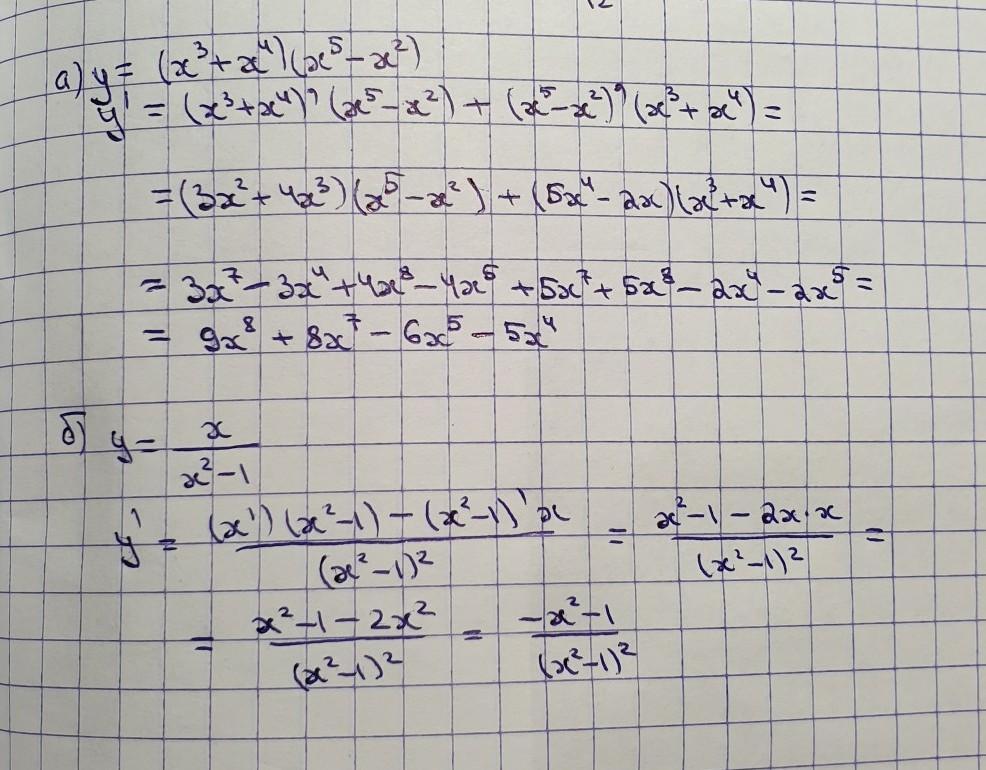 12
а) y = (x³ + x⁴)(x⁵ − x²)
y' = (x³ + x⁴)' (x⁵ − x²) + (x⁵ − x²)' (x³ + x⁴) =
= (3x² + 4x³)(x⁵ − x²) + (5x⁴ − 2x)(x³ + x⁴) =
= 3x⁷ − 3x⁴ + 4x⁸ − 4x⁵ + 5x⁷ + 5x⁸ − 2x⁴ − 2x⁵ =
= 9x⁸ + 8x⁷ − 6x⁵ − 5x⁴
б) y = x / (x² − 1)
y' = ((x') (x² − 1) − (x² − 1)' x) / (x² − 1)² = (x² − 1 − 2x · x) / (x² − 1)² =
= (x² − 1 − 2x²) / (x² − 1)² = (−x² − 1) / (x² − 1)²